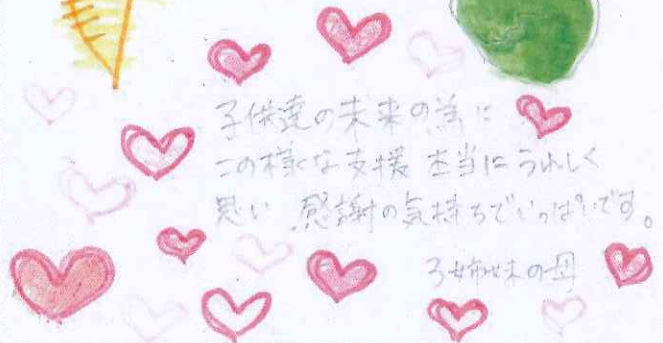 子供達の未来の為に
この様な支援 本当にうれしく
思い 感謝の気持ちでいっぱいです。
3姉妹の母